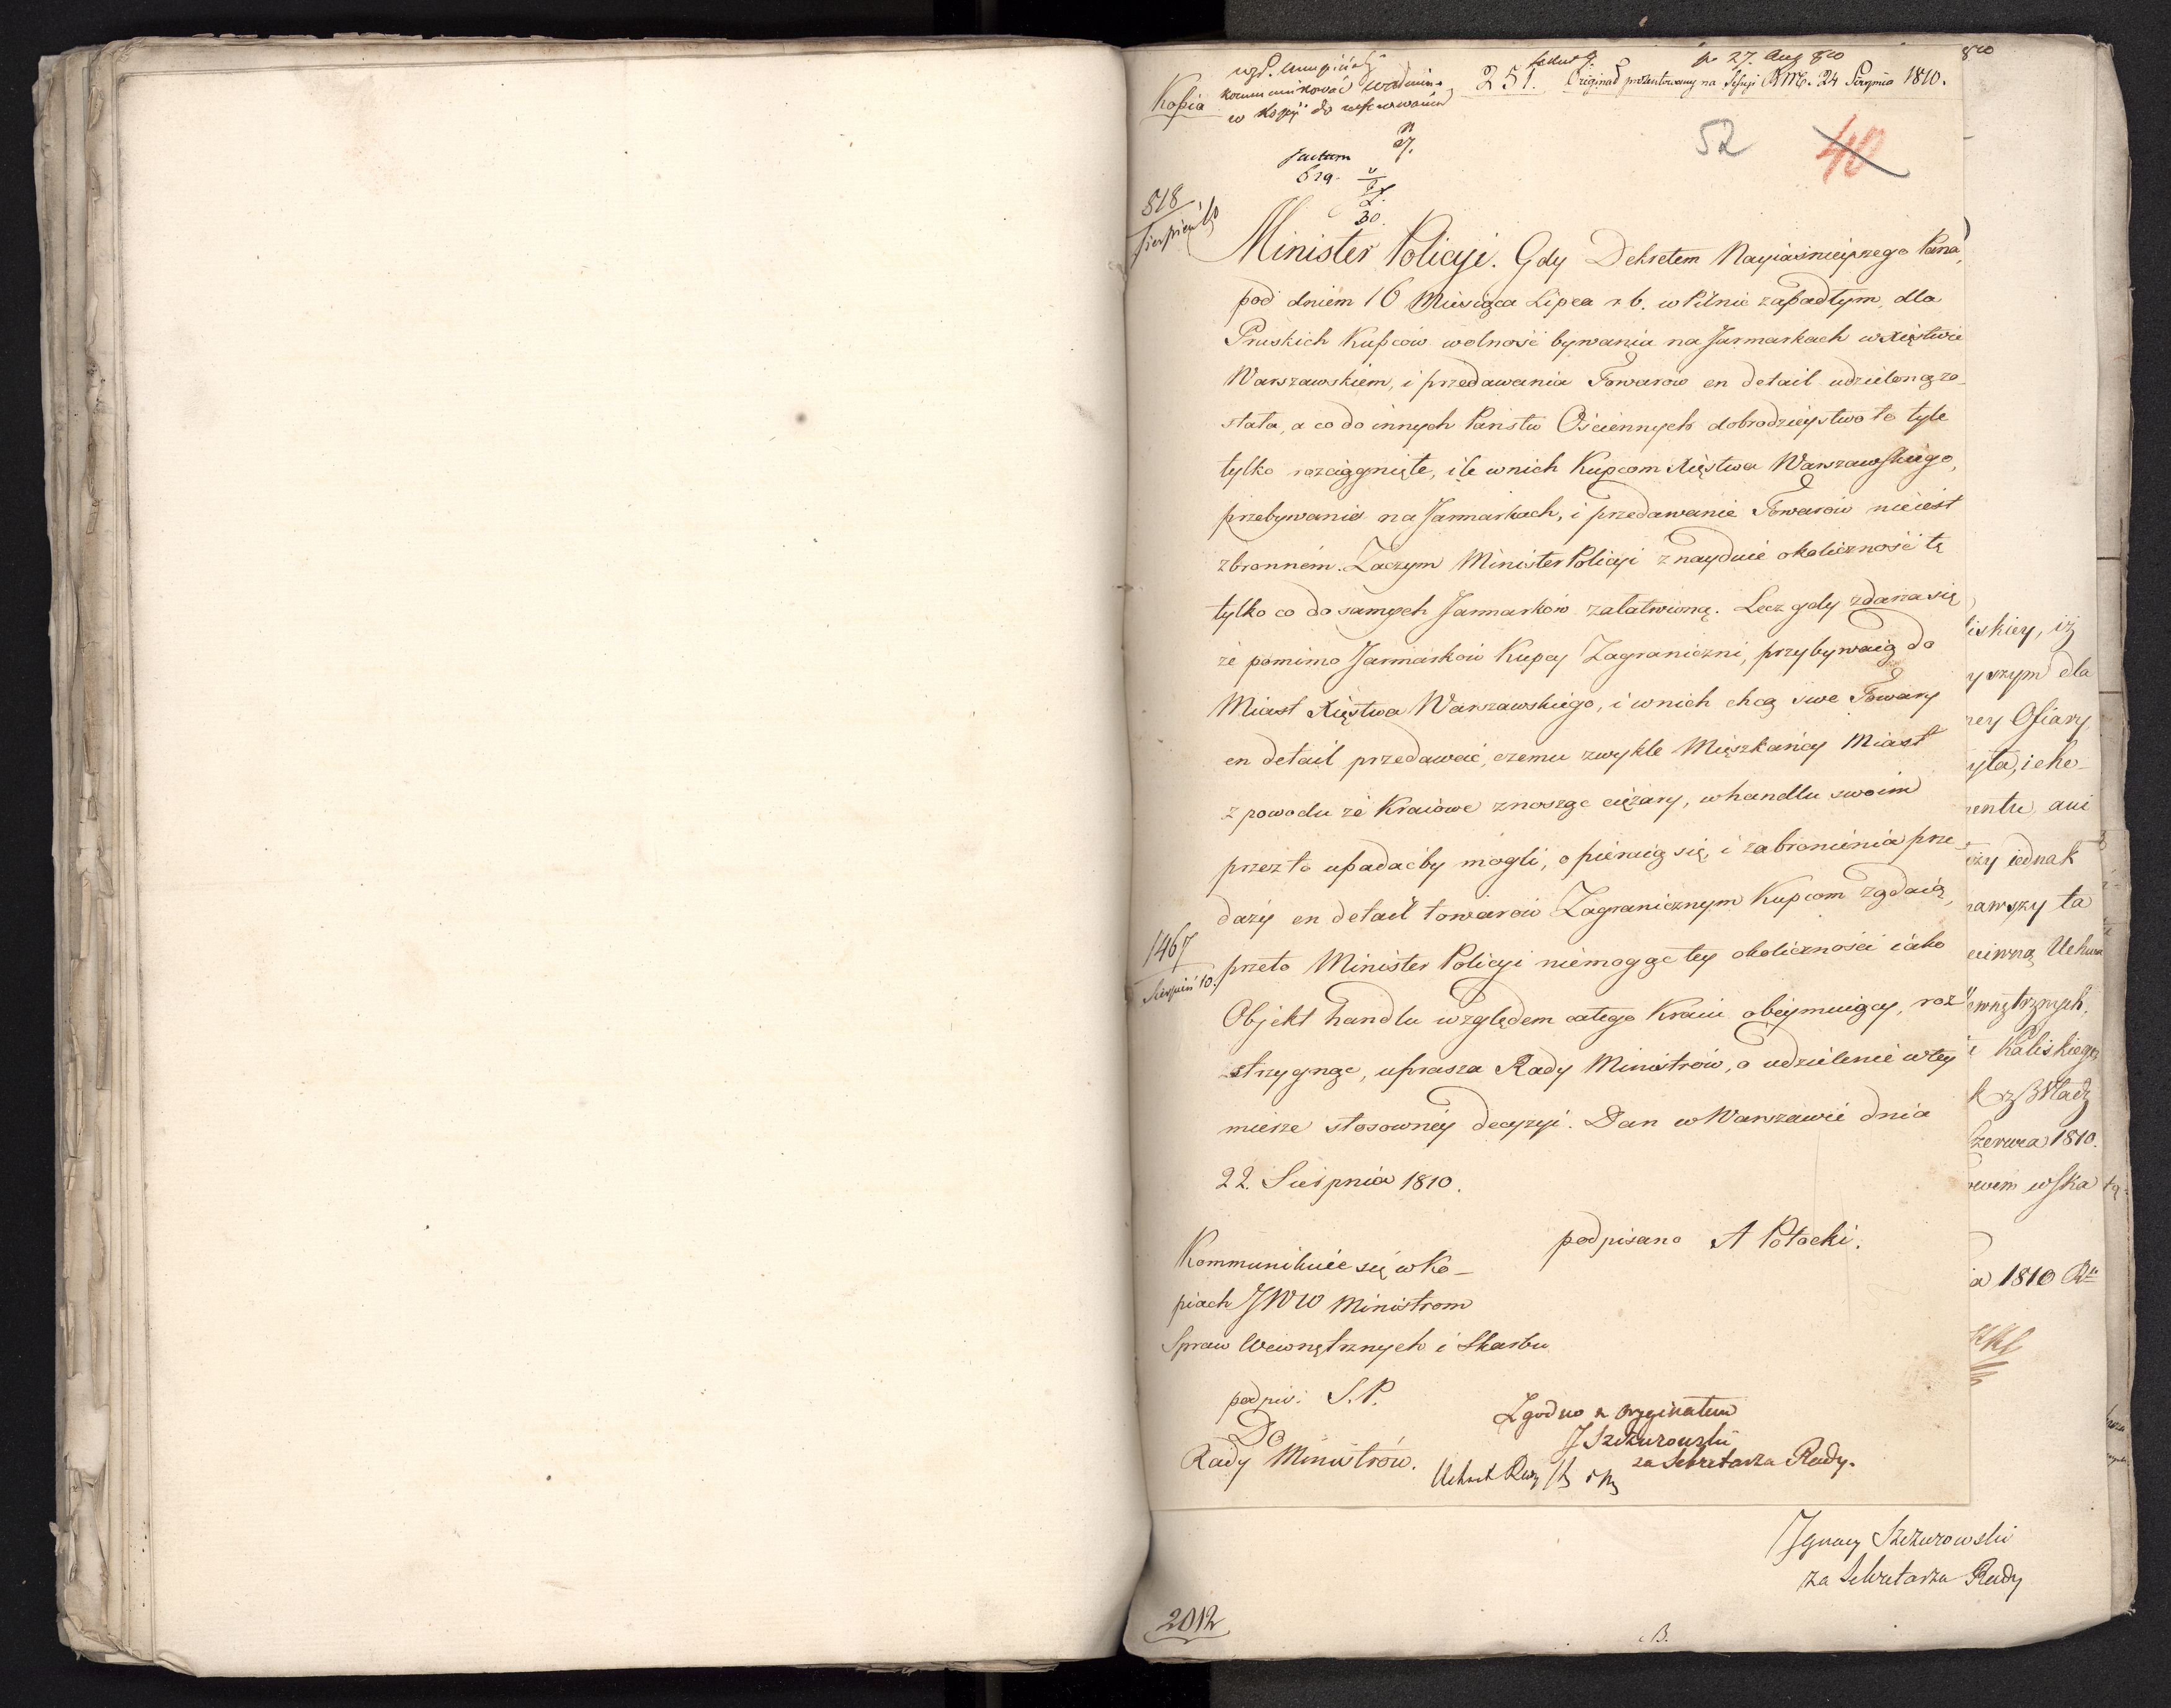 Kopia
kommunikować
w kopij do
251.
pr 27. Aug 810
Originał prezentowany na Sessyi RMt. 24 Sierpnia 1810.
810
52
40
factum
27.
30.
818
Sierpień
Minister Policyi. Gdy Dekretem Nayiaśnieyszego Pana,
pod dniem 16 Miesiąca Lipca r. b. w Pilnic zapadłym, dla
Pruskich Kupców wolność bywania na Jarmarkach w Xięstwie
Warszawskiem, i przedawania Towarów en detail udzieloną zo-
stała, a co do innych Państw Ościennych dobrodzieystwo to tyle
tylko rozciągnięte, ile w nich Kupcom Xięstwa Warszawskiego,
przebywanie na Jarmarkach, i przedawanie Towarów nieiest
zbronném. Zaczym Minister Policyi znayduie okoliczność tę
tylko co do samych Jarmarków załatwioną. Lecz gdy zdarza się
że pomimo Jarmarków Kupcy Zagraniczni, przybywaią do
Miast Xięstwa Warszawskiego, i w nich chcą swe Towary
en detail przedawać, czemu zwykle Mieszkańcy Miast
z powodu że Kraiowe znosząc ciężary, w handlu swoim
przez to upadaćby mogli, opieraią się, i zabronienia prze-
daży en detail towarów Zagranicznym Kupcom żądaią,
1467
Sierpień 10.
przeto Minister Policyi niemogąc tey okoliczności iako
Objekt handlu względem całego Kraiu obeymuiący, roz-
strzygnąć, uprasza Rady Ministrów, o udzielenie w tey
mierze stosowney decyzyi. Dan w Warszawie dnia
22. Sierpnia 1810.
podpisano A Potocki.
Kommunikuie się w Ko-
piach JWW Ministrom
Spraw Wewnętrznych i Skarbu
podpis: S. P.
Do
Rady Ministrów.
Zgodno z Oryginałem
J Szczurowski
za Sekretarza Rady.
liskiey, iż
yższym dla
ney Ofiary,
yta, i cho-
mentu, ani
iednak
nawszy ta
eciwną Uchwa
ewnętrznych,
i Kaliskiego
Czerwca 1810.
ia 1810 R
Ignacy Szczurowski
za Sekretarza Rady
2012
B.